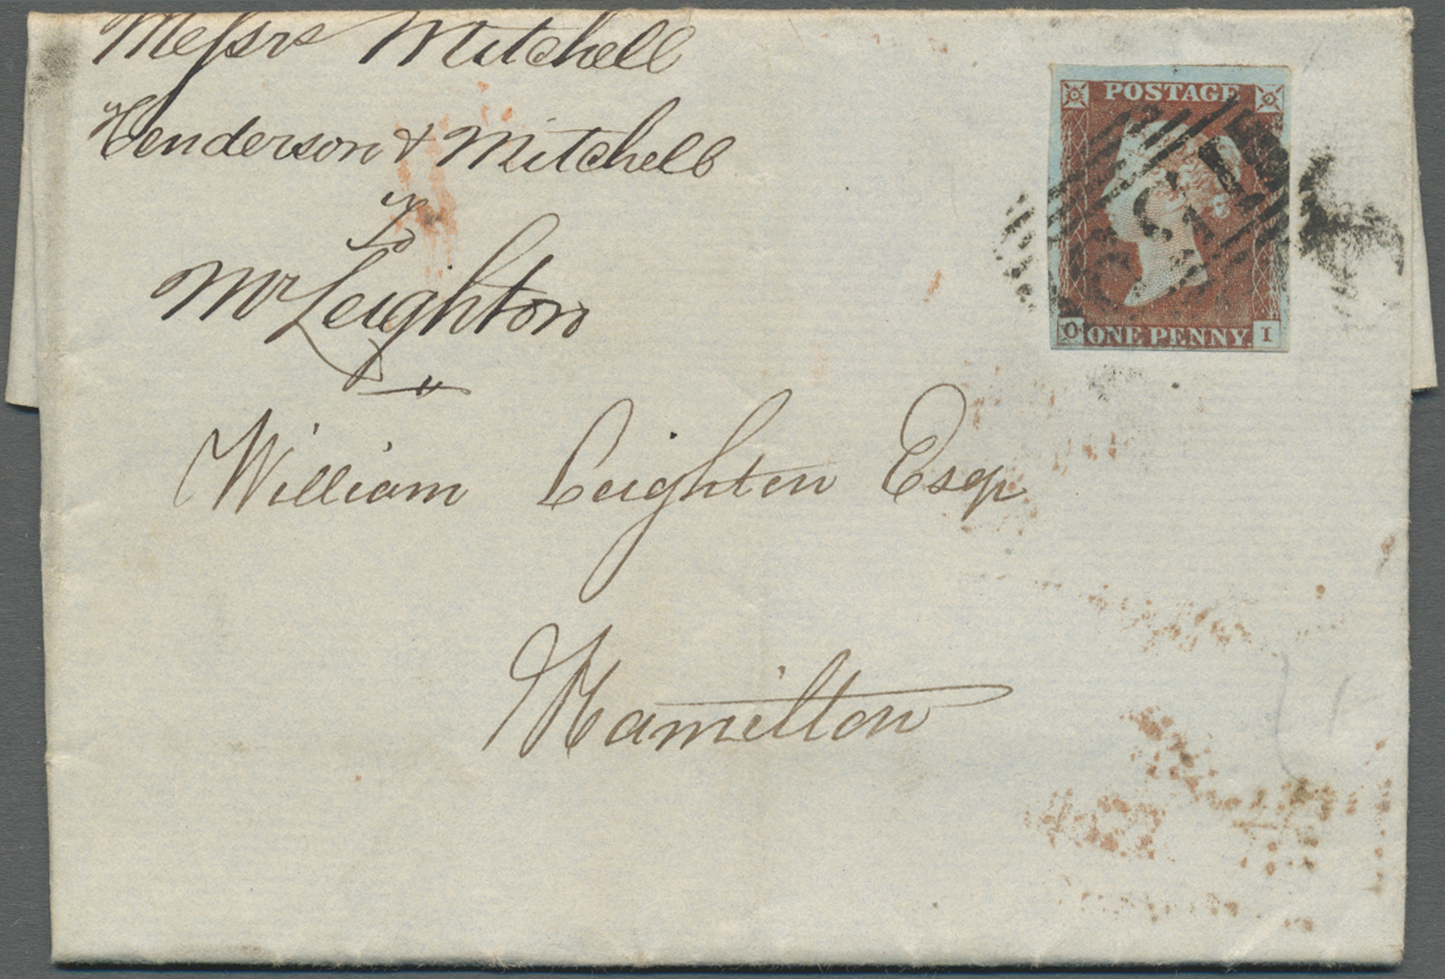 Messrs Mitchell
Henderson & Mitchell
To
Mr Leighton
William Leighton Esqr
Hamilton
POSTAGE
O ONE PENNY. I